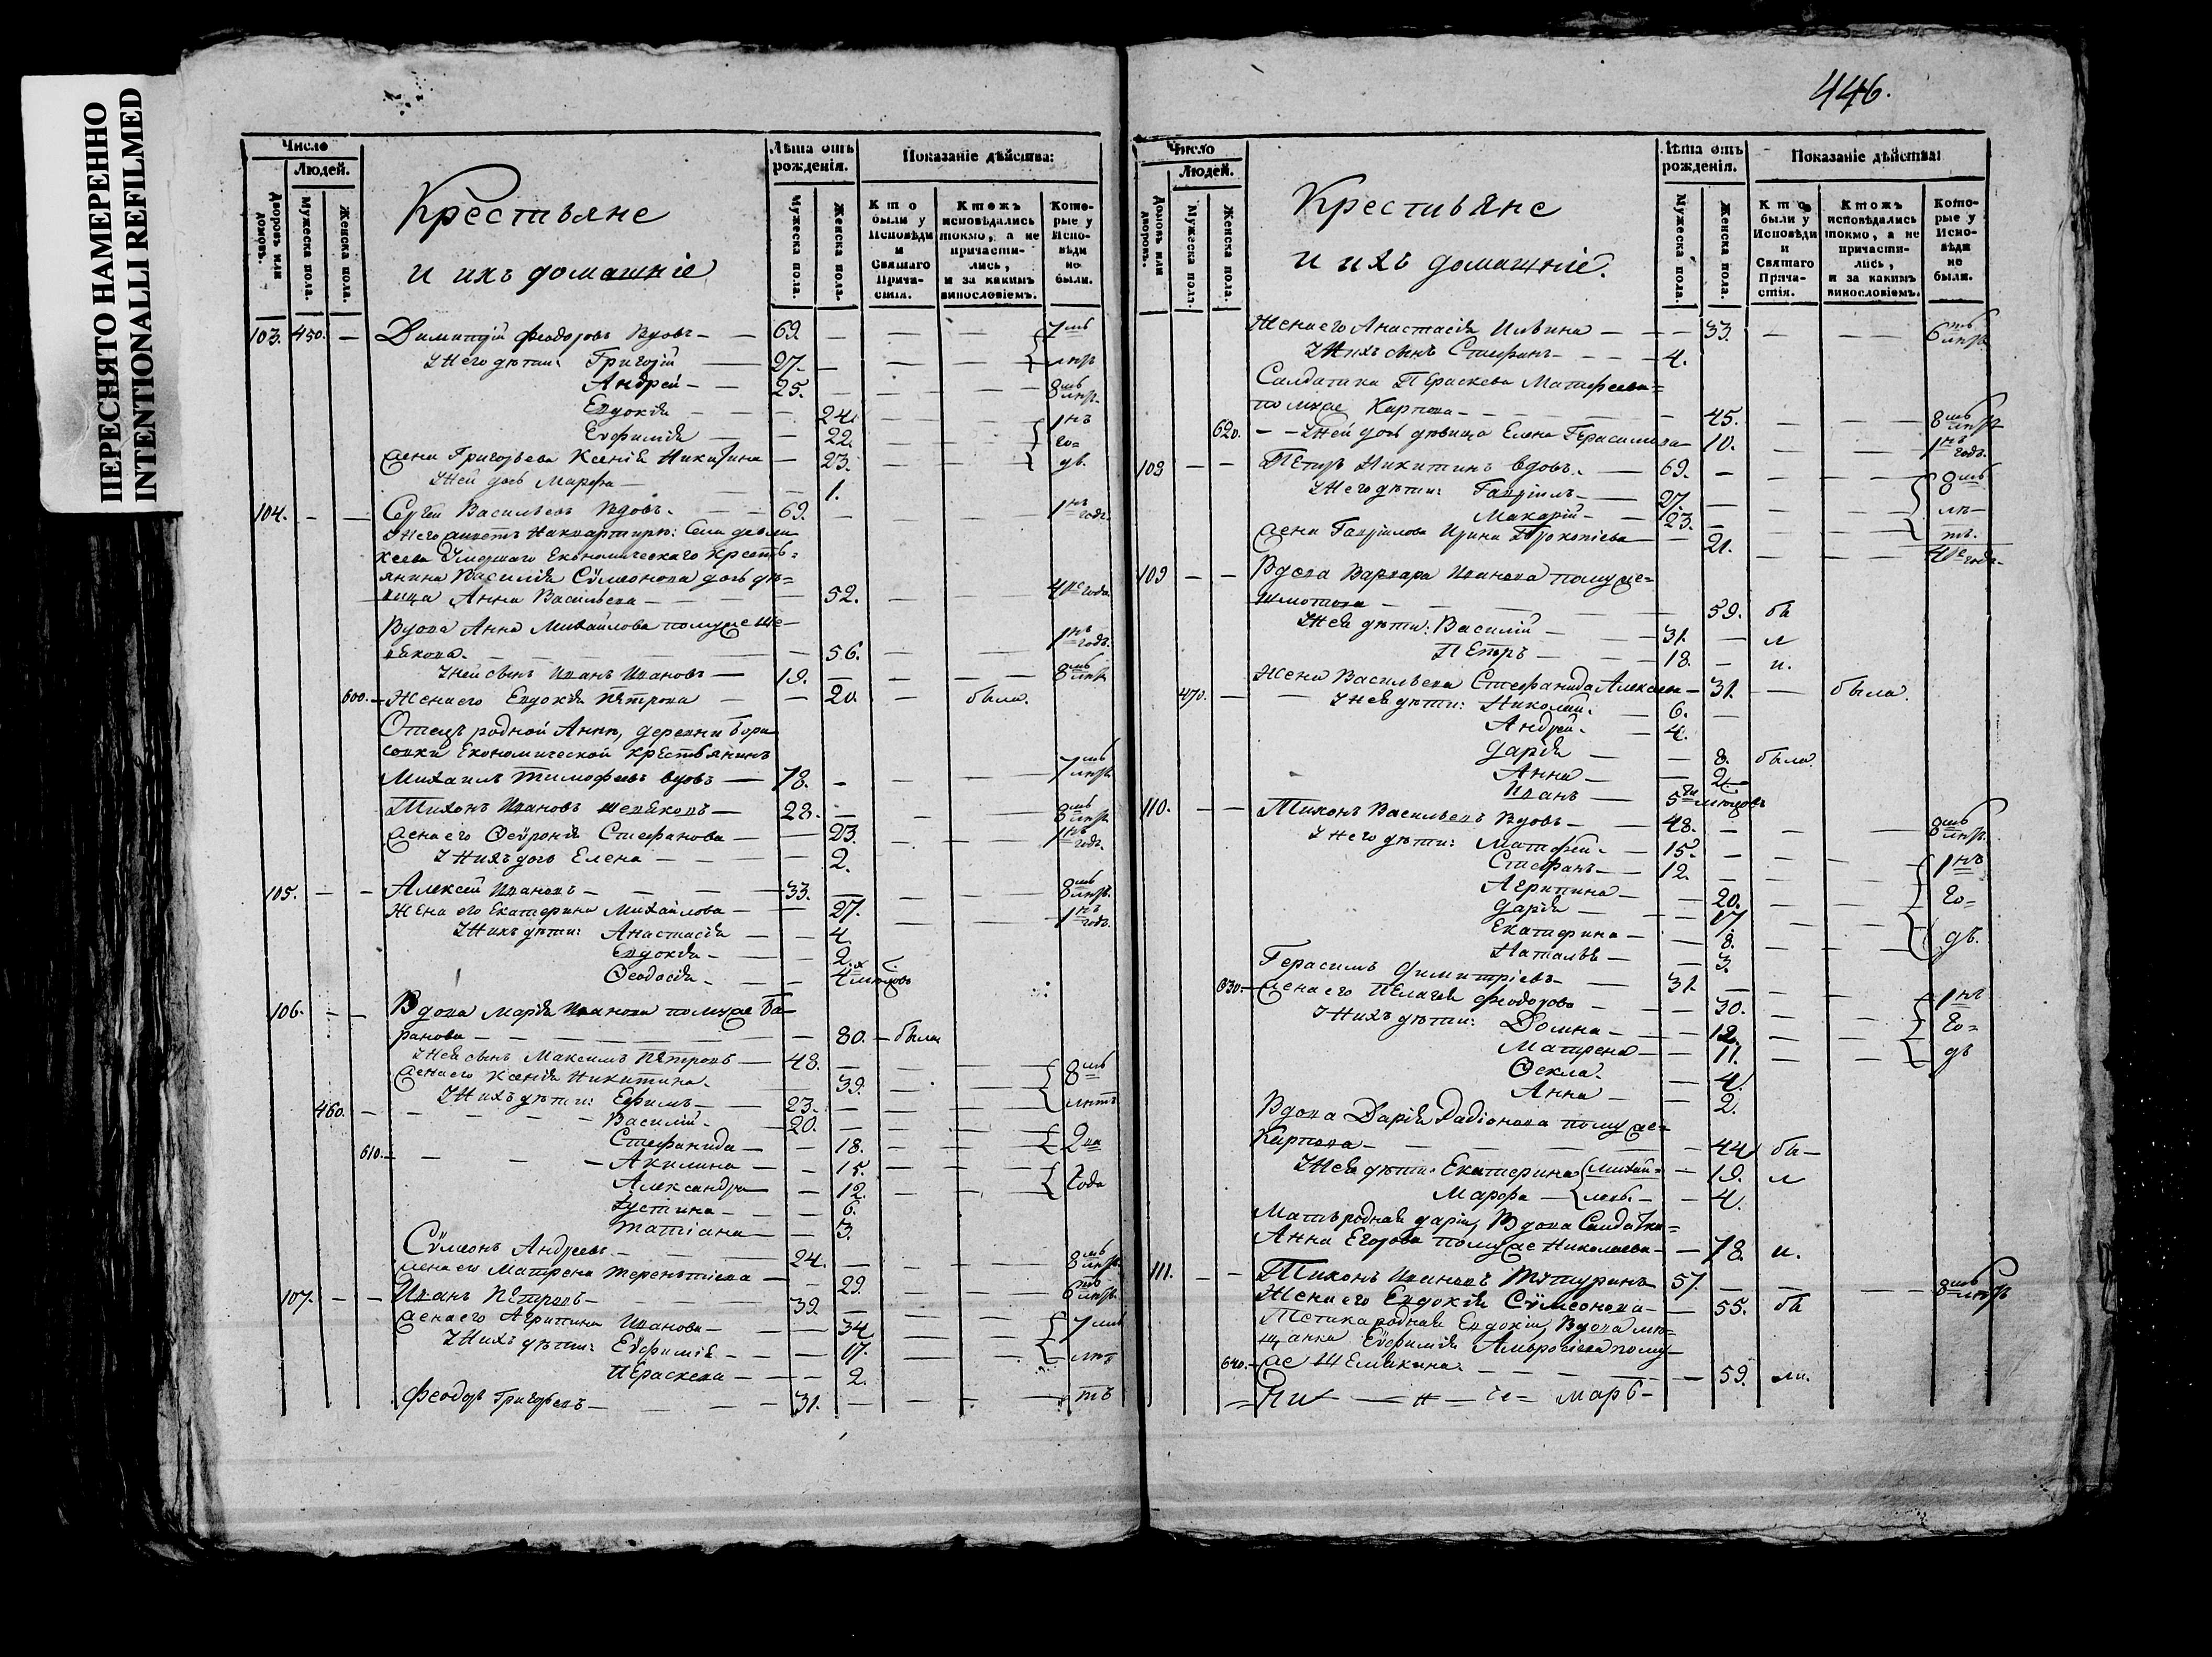 ПЕРЕСНЯТО НАМЕРЕННО
INTENTIONALLI REFILMED
Число
Людей.
Дворовъ или домовъ.
Мужеска пола.
Женска пола.
Крестьяне
и ихъ домашніе
Лѣта отъ рожденія.
Мужеска пола.
Женска пола.
Показаніе дѣйства:
Кто были у Исповѣди и Святаго Причастія.
Ктожъ исповѣдались токмо, а не причастились, и за какимъ винословіемъ.
Которые у Исповѣди не были.
103. 450. — Димитрій Феодоровъ вдовъ — 69 — — — 7мь
У него дѣти: Григорій — 27. — — — лѣтъ
Андрей — 25. — — — 8мь лѣтъ
Евдокія — 24. 1нъ
Евфимія — 22. го=
жена Григорьева Ксенія Никитина — 23. дъ.
У ней дочь Марфа — 1.
104. — — Сергей Васильевъ вдовъ. — 69. — — — 1нъ годъ.
У него живетъ на квартирѣ: Села
умершаго Економическаго крестъ=
янина Василія Сѵмеонова дочь дѣ=
вица Анна Васильева — 52. — — 4ре года
Вдова Анна Михайлова по мужѣ Ше=
вякова. — 56. — — 1нъ годъ.
У ней сынъ Иванъ Ивановъ — 19. — — — 8мь лѣтъ
600. — Жена его Евдокія Петрова — 20. — была.
Отецъ родной Анны, деревни Бори
совки Економической крестьянинъ
Михаилъ Тимофеевъ вдовъ — 78. — — — 7мь лѣтъ
Тихонъ Ивановъ Шевяковъ — 28. — — — 8мь лѣтъ
жена его Февронія Стефанова — 23. — — 1нъ годъ.
У нихъ дочь Елена — 2.
105. — — Алексей Ивановъ — 33. — — — 8мь лѣтъ.
Жена его Екатерина Михайлова — 27. — — 1нъ годъ.
У нихъ дѣти: Анастасія — 4.
Евдокія — 2.
Феодосія — 4х
106. — — Вдова Марія Иванова по мужѣ Ба=
ранова — 80. — была
У нея сынъ Максимъ Петровъ — 48. — — — 8мь
жена его Ксенія Никитина — 39.
У нихъ дѣти: Ефимъ — 23. — — — лѣтъ
460. — Василій — 20. — — —
Стефанида — 18. — — 2ва
610. — Акилина — 15. — —
Александра — 12. — — года
Устина — 6.
Татіана — 3.
Сѵмеонъ Андреевъ — 24. — — — 8мь лѣтъ.
жена его Матрена Терентіева — 29. — — 6ть лѣтъ.
107. — — Иванъ Петровъ — 39. — — —
жена его Агрипина Иванова — 34 — — 7мь
У нихъ дѣти: Евфимія — 17. — — лѣ
Пераскева — 2.
Феодоръ Григорьевъ — 31. — — — тъ
446.
Число
Людей.
Домовъ или дворовъ.
Мужеска пола.
Женска пола.
Крестьяне
и ихъ домашніе.
Лѣта отъ рожденія.
Мужеска пола.
Женска пола.
Показаніе дѣйства:
Кто были у Исповѣди и Святаго Причастія.
Ктожъ исповѣдались токмо, а не причастились, и за какимъ винословіемъ.
Которые у Исповѣди не были.
Жена его Анастасія Ильина — 33. — — 6ть лѣтъ.
У нихъ сынъ Стефанъ — 4.
Салдатка Пераскева Матфеева=
по мужѣ Карпова — 45. — — 8мь лѣтъ
620. — — У ней дочь дѣвица Елена Герасимова — 10. — — 1нъ годъ.
108 — — Петръ Никитинъ вдовъ. — 69. — — — 8мь
У него дѣти: Гавріилъ — 27. — — — лѣ—
Макарій — 23. — тъ.
жена Гавріилова Ирина Прокопіева — 21. — — 4ре года
109 — — Вдова Варвара Иванова по мужѣ=
— 59. бы
У нея дѣти: Василій — 31. — л
Петръ — 18. — и.
Жена Васильева Стефанида Алексеева — 31. — была.
470. — — У нея дѣти: Николай — 6. —
Андрей — 4.
Дарія — 8. была.
Анна — 2.
Иванъ — 5ти
110. — — Тихонъ Васильевъ вдовъ — 48. — — — 8мь лѣтъ.
У него дѣти: Матфей — 15. — 1нъ
Стефанъ — 12. —
Агрипина — 20. — — го=
Дарія — 17.
Екатерина — 8. — дъ.
Наталья — 3.
Герасимъ Димитріевъ — 31. — — —
630. — жена его Пелагея Феодорова — 30. — — 1нъ
У нихъ дѣти: Домна — 12. — — го=
Матрена — 11. — — дъ
Фекла — 4.
Анна — 2.
Вдова Дарія Радіонова по мужѣ=
Карпова — 44 бы—
У нея дѣти: Екатерина Михай= — 19. л
Марфа — ловы — 4.
Мать родная Даріи, Вдова Салдатка=
Анна Егорова по мужѣ Николаева — 78. и.
111. — — Тихонъ Ивановъ — 57. — — — 8мь лѣтъ
Жена его Евдокія Сѵмеонова — 55. бы
Тетка родная Евдокіи, Вдова мѣ=
щанка Евфимія Амвросіева по му—
640. — жѣ Шемякина — 59. ли.